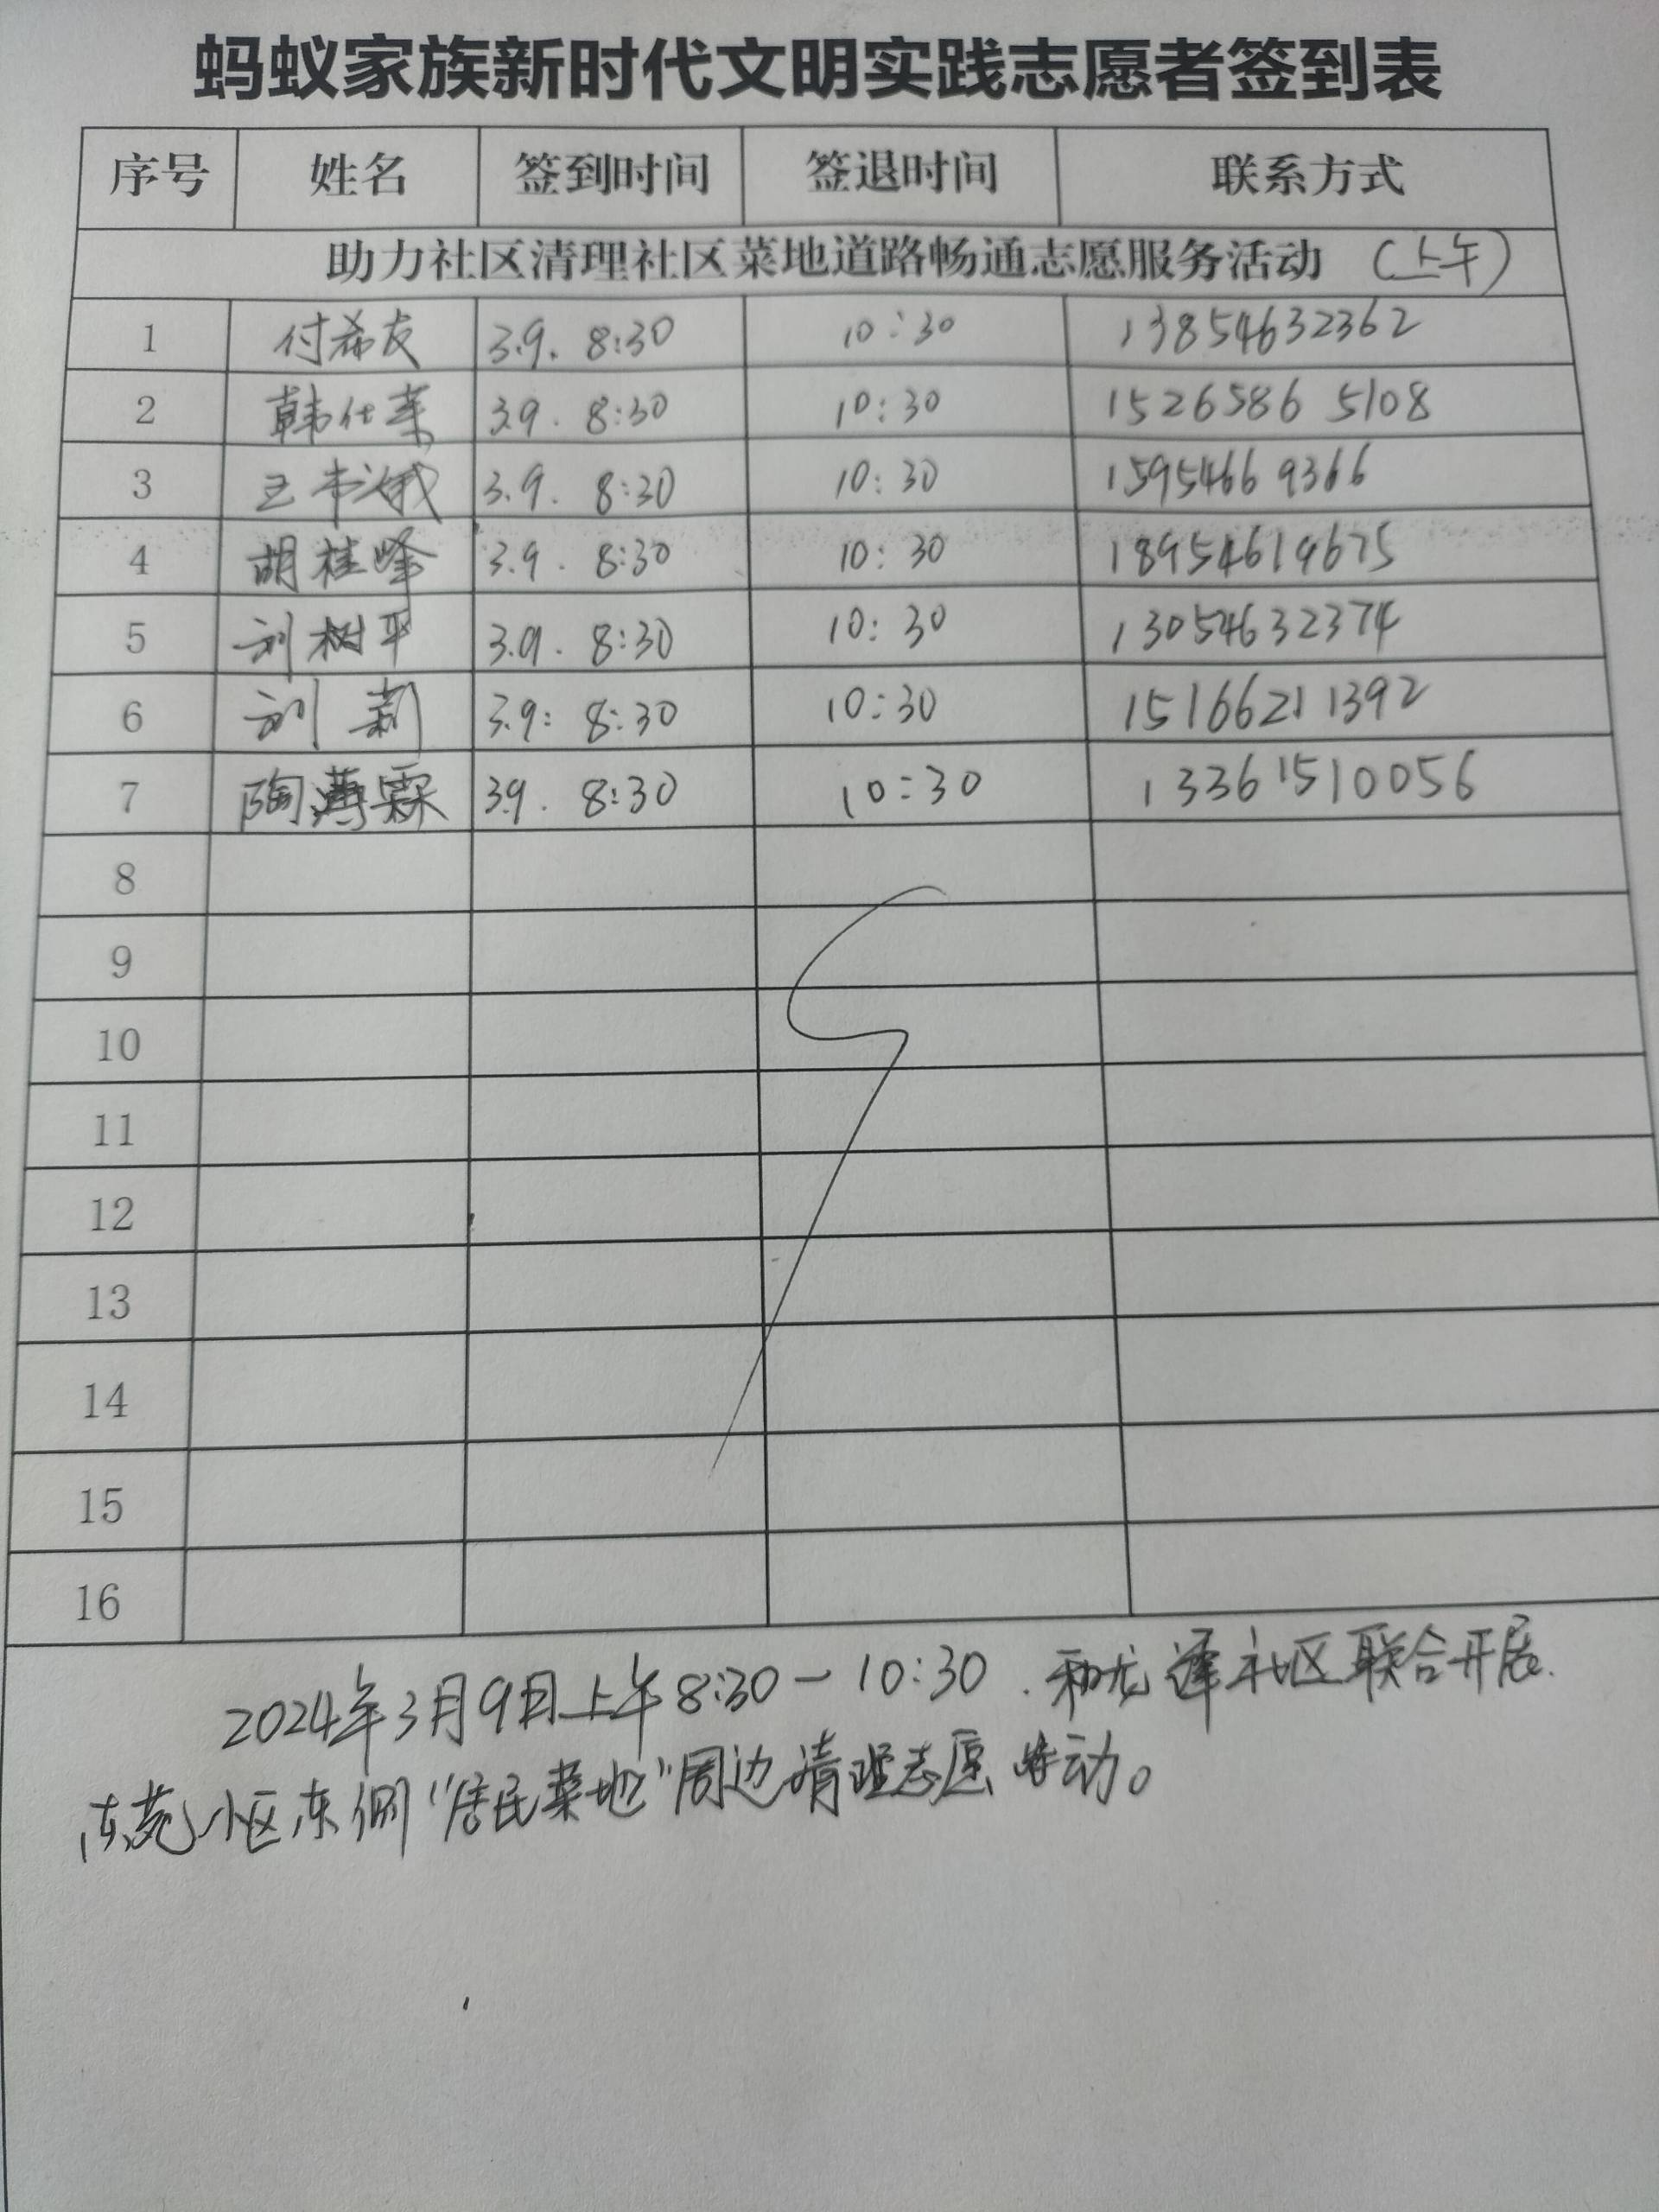 蚂蚁家族新时代文明实践志愿者签到表
序号 姓名 签到时间 签退时间 联系方式
助力社区清理社区菜地道路畅通志愿服务活动 (上午)
1 付希友 3.9. 8:30 10:30 13854632362
2 韩仕荣 3.9. 8:30 10:30 15265865108
3 王 3.9. 8:30 10:30 15954669366
4 胡桂峰 3.9. 8:30 10:30 18954619675
5 刘树平 3.9. 8:30 10:30 13054632374
6 刘莉 3.9: 8:30 10:30 15166211392
7 陶霖 3.9. 8:30 10:30 13361510056
8
9
10
11
12
13
14
15
16
2024年3月9日上午8:30-10:30.和龙社区联合开展.
东苑小区东侧“居民菜地”周边清理志愿动。